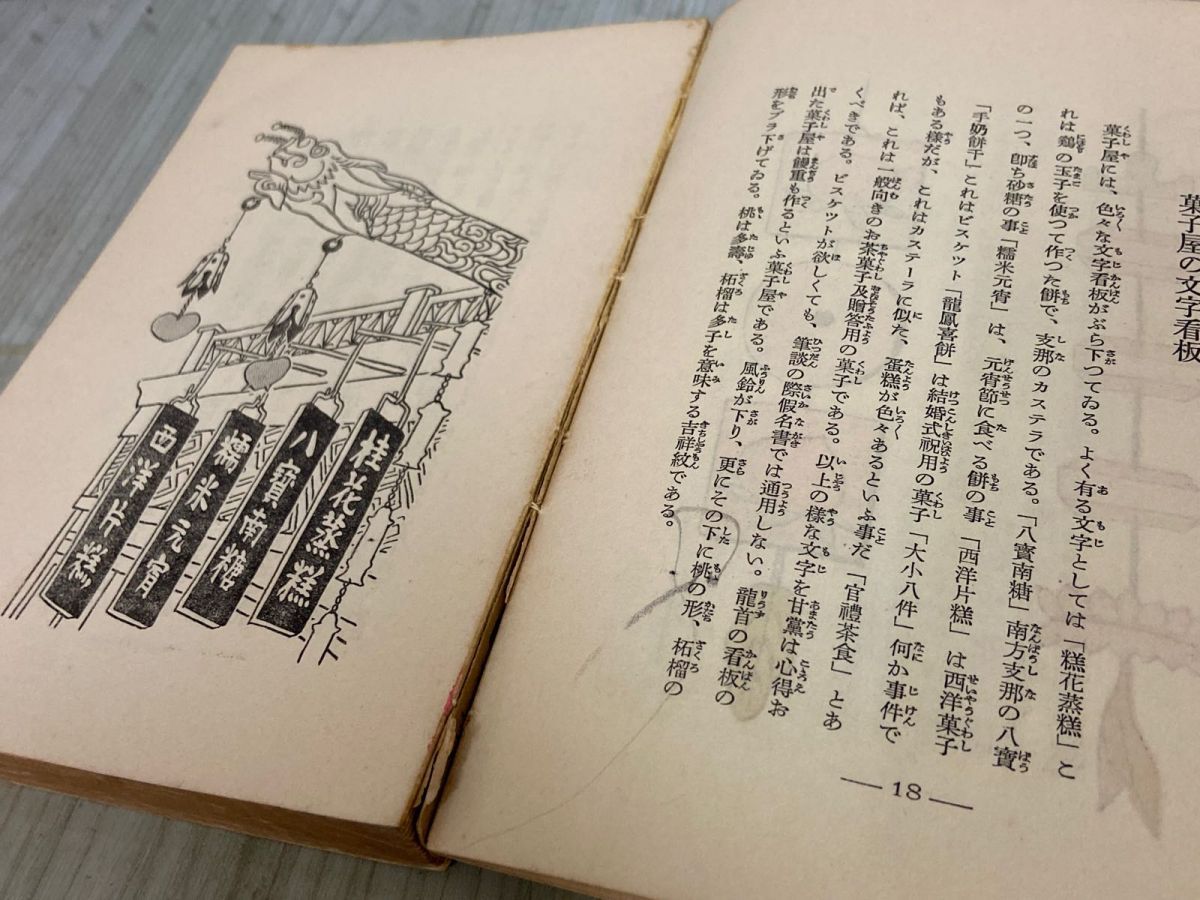 菓子屋の文字看板
菓子屋には、色々な文字看板がぶら下つてゐる。よく有る文字としては「糕花蒸糕」こ
れは鷄の玉子を使つて作つた餅で、支那のカステラである。「八寳南糖」南方支那の八寳
の一つ、卽ち砂糖の事「糯米元宵」は、元宵節に食べる餅の事「西洋片糕」は西洋菓子
「手奶餅干」これはビスケット「龍鳳喜餅」は結婚式祝用の菓子「大小八件」何か事件で
もある樣だが、これはカステーラに似た、蛋糕が色々あるといふ事だ「官禮茶食」とあ
れば、これは一般向きのお茶菓子及贈答用の菓子である。以上の樣な文字を甘黨は心得お
くべきである。ビスケットが欲しくても、筆談の際假名書では通用しない。龍首の看板の
出た菓子屋は饅重も作るといふ菓子屋である。風鈴が下り、更にその下に桃の形、柘榴の
形をブラ下げてゐる。桃は多壽、柘榴は多子を意味する吉祥紋である。
— 18 —
桂花蒸糕
八寳南糖
糯米元宵
西洋片糕